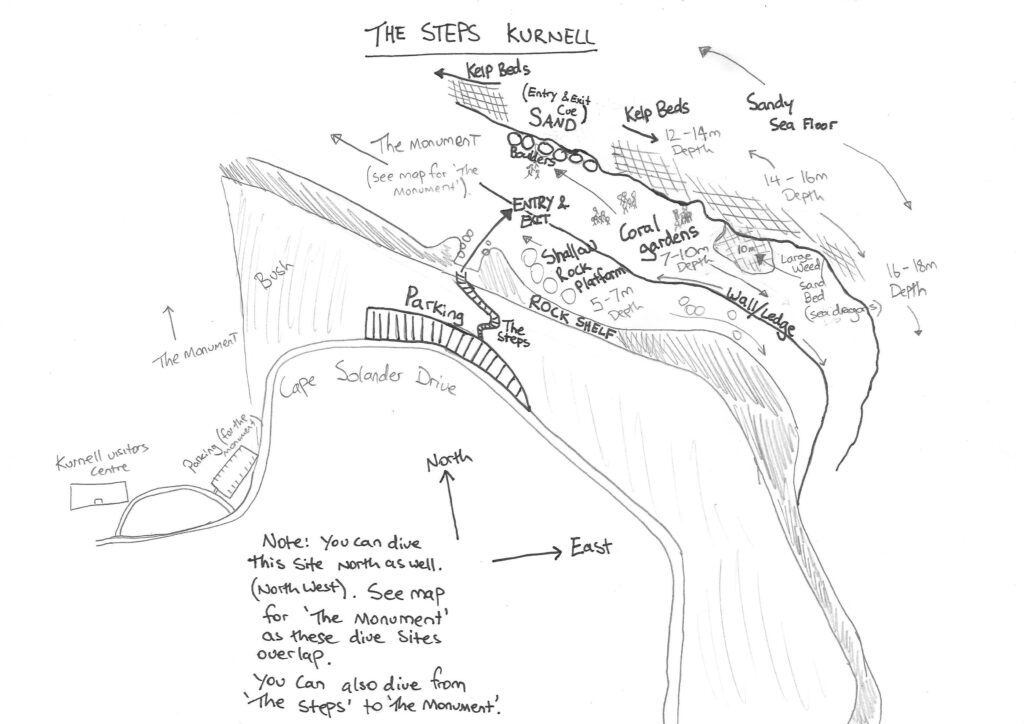 THE STEPS KURNELL
Kelp Beds
(Entry & Exit
Cue)
SAND
Kelp Beds
12-14m
Depth
Sandy
Sea Floor
The Monument
(see map for 'The
Monument').
Boulders
14-16m
Depth
ENTRY &
EXIT
Coral
gardens
7-10m
Depth
10m
Large
Weed/
Sand
Bed
(sea dragons)
16-18m
Depth
Shallow
Rock
Platform
5-7m
Depth
Wall/Ledge
Bush
Parking
The
Steps
ROCK SHELF
The Monument
Cape Solander Drive
Parking (for the
Monument)
Kurnell visitors
centre
North
East
Note: You can dive
this site North as well.
(North West). See map
for 'The Monument'
as these dive sites
overlap.
You can also dive from
'The Steps' to 'The Monument'.